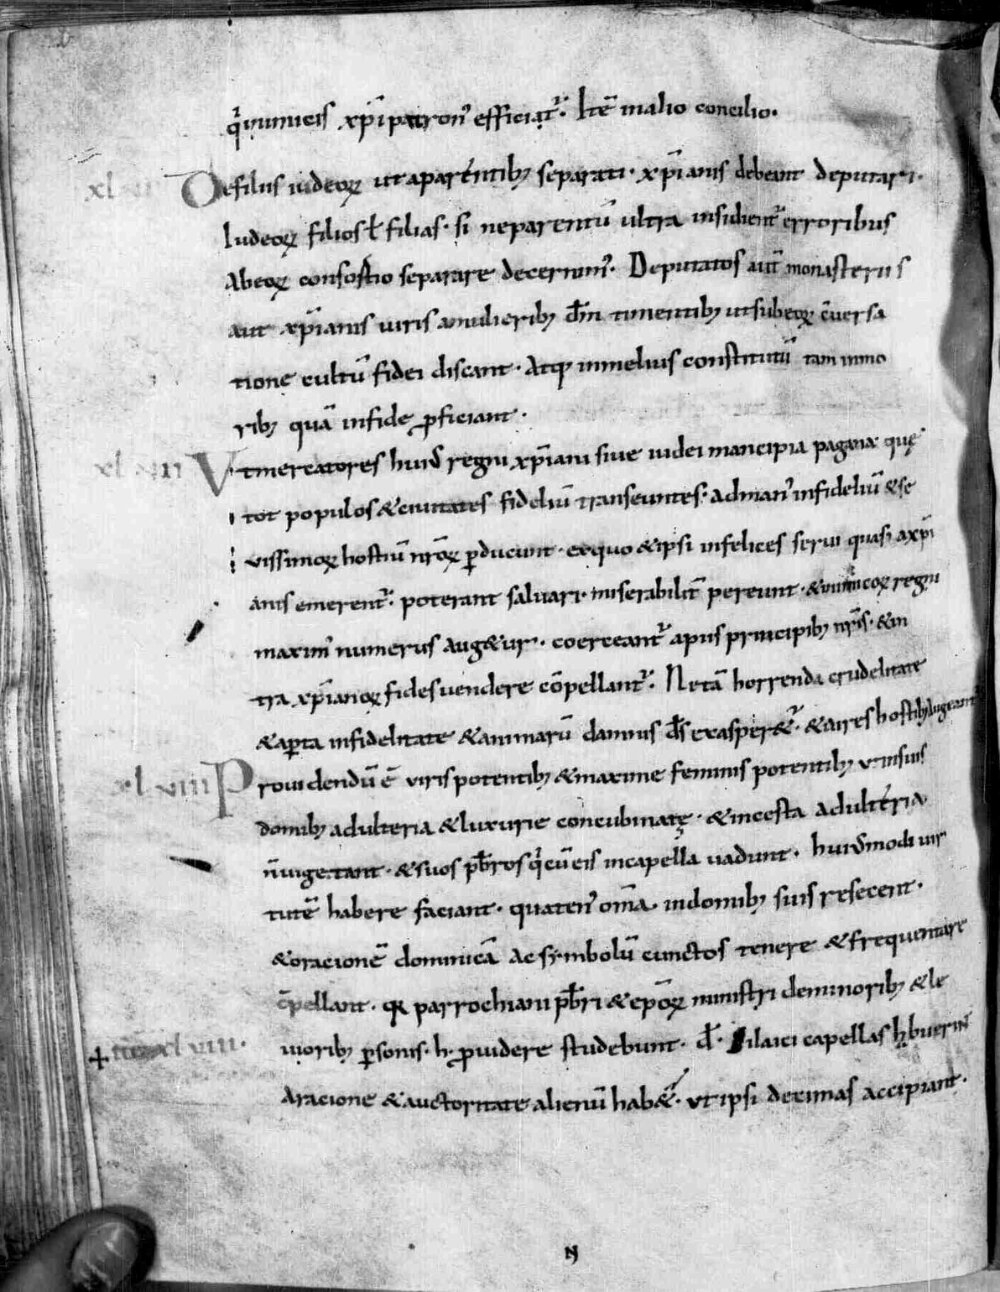 qͥ inimicis xp̄i patron᾽ efficiat᷑. Itē in alio concilio.
xl De filiis iudeoꝝ ut a parentibꝫ separati · xp̄ianis debeant deputari ·
Iudeoꝝ filios ł filias · si ne parentū ultra insidient᷑ erroribus
Ab eoꝝ consortio separare decernim᾽. Deputatos aut̄ monasteriis
aut xp̄ianis uiris a mulieribꝫ dm̄ timentibꝫ ut sub eoꝝ c̄uersa
tione cultū fidei discant · Atqꝫ in melius constitutū tam in mo
ribꝫ quā in fide ꝓficiant ·
xl vii Vt mercatores hui᾽ regni xp̄iani siue iudei mancipia pagana que
tot populos & ciuitates fideliū transeuntes · ad man᾽ infideliū & se
vissimoꝝ hostiū nr̄oꝝ ꝑducunt · ex quo & ipsi infelices serui quasi a xp̄i
anis emerent᷑. poterant saluari · miserabilit̄ pereunt · & inimicoꝝ regni
maxim᾽ numerus aug&ur · coerceant᷑ a piis principibꝫ nr̄is · & in
tra xp̄ianoꝝ fides vendere cōpellant᷑. Ne tā horrenda crudelitate
& aꝑta infidelitate & animarū damnis dꝰ exasper&᷑ · & aires hostibꝫ augeant᷑
xl viii Prouidendū ē viris potentibꝫ & maxime feminis potentibꝫ ut in suis
domibꝫ adulteria & luxurie concubinatę · & incesta adulteria
n̄ uigeant · & suos p̄b̄ros qͥ cū eis in capella uadunt · hui᾽modi uir
tutē habere faciant · quaten᾽ om̄a in domibꝫ suis resecent ·
& oracionē dominicā ac symbolū cunctos tenere & frequentare
c̄pellant · qꝛ parrochiani p̄b̄ri & ep̄oꝝ ministri de minoribꝫ & le
✝ xl viii · uioribꝫ ꝑsonis · h· ꝓuidere studebunt · d̄ · Si laici capellas h̄buerint
A racione & auctoritate alienū hab&᷑ · ut ipsi decimas accipiant ·
N